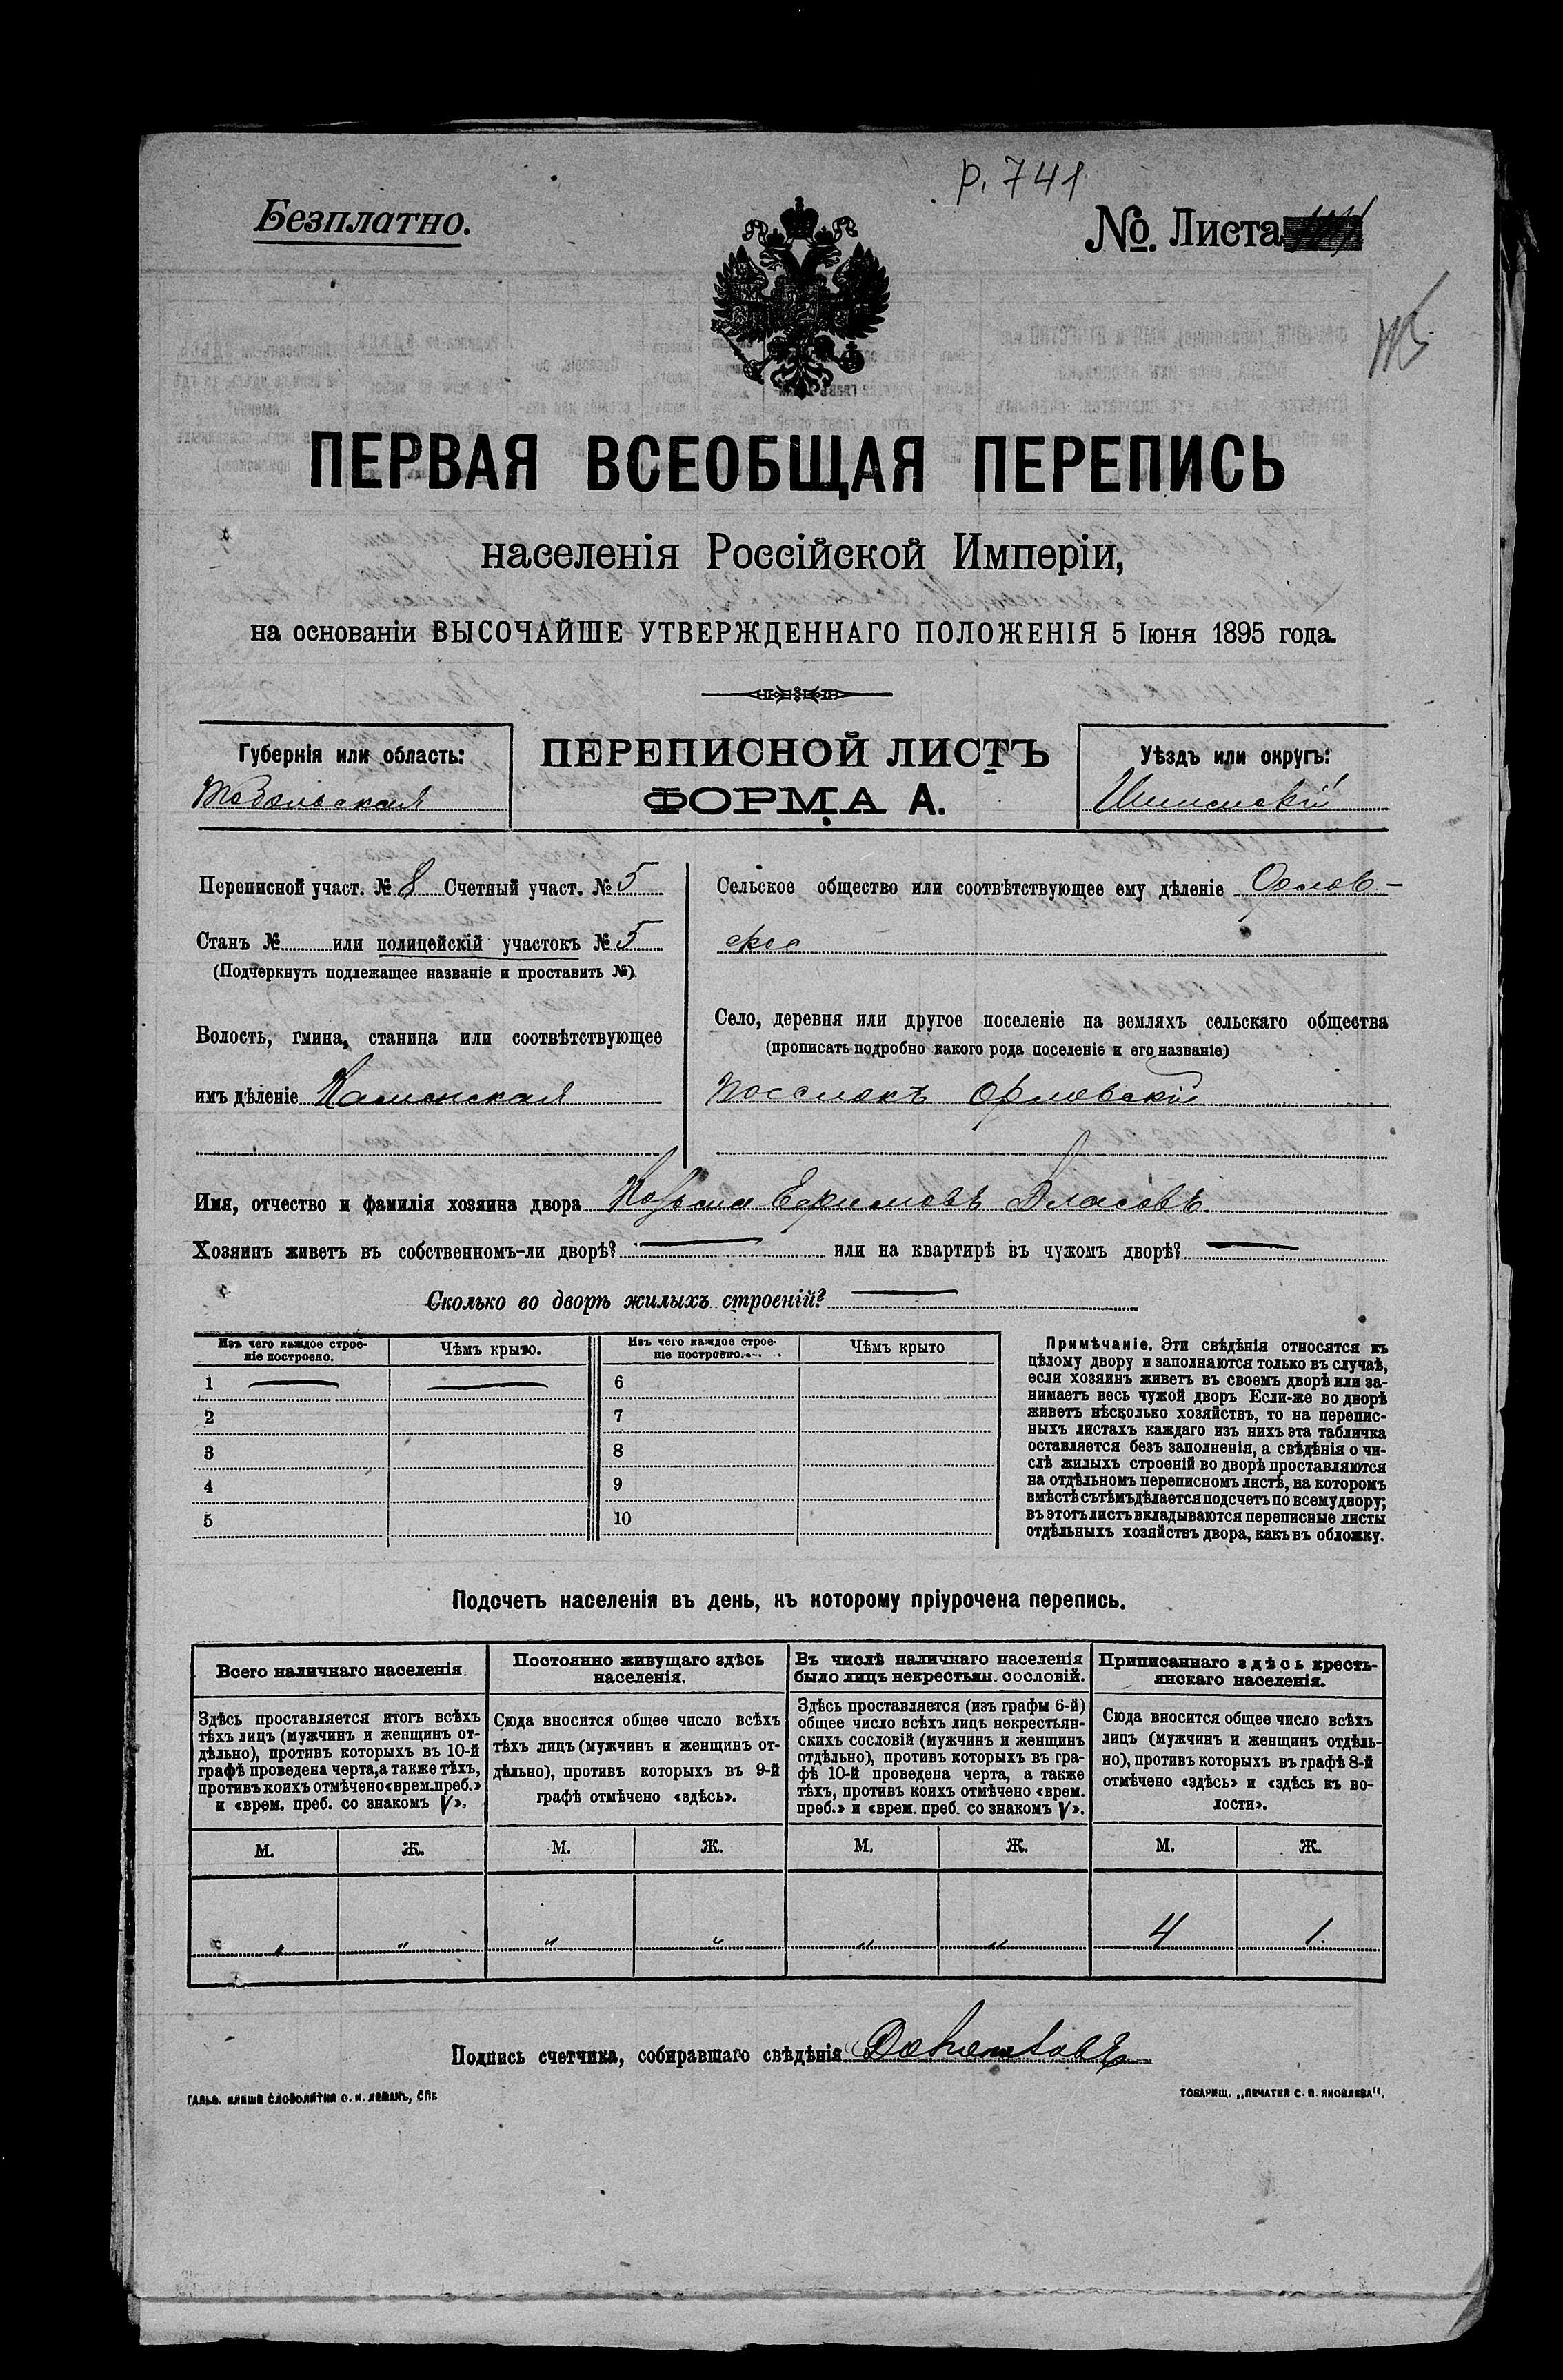 р. 741
Безплатно.
№. Листа
ПЕРВАЯ ВСЕОБЩАЯ ПЕРЕПИСЬ
населенія Россійской Имперіи,
на основаніи ВЫСОЧАЙШЕ УТВЕРЖДЕННАГО ПОЛОЖЕНІЯ 5 Іюня 1895 года.
Губернія или область:
Тобольская
ПЕРЕПИСНОЙ ЛИСТЪ
ФОРМА А.
Уѣздъ или округъ:
Ишимскій
Переписной участ. № 8 Счетный участ. № 5
Станъ № или полицейскій участокъ № 5
(Подчеркнуть подлежащее названіе и проставить №)
Волость, гмина, станица или соотвѣтствующее
имъ дѣленіе Каменская
Сельское общество или соотвѣтствующее ему дѣленіе Орлов-
ское
Село, деревня или другое поселеніе на земляхъ сельскаго общества
(прописать подробно какого рода поселеніе и его названіе)
Поселокъ Орловскій
Имя, отчество и фамилія хозяина двора Козьма Ефимовъ Власовъ
Хозяинъ живетъ въ собственномъ-ли дворѣ? или на квартирѣ въ чужомъ дворѣ?
Сколько во дворѣ жилыхъ строеній?
Изъ чего каждое строе-
ніе построено.
Чѣмъ крыто.
1
2
3
4
5
Изъ чего каждое строе-
ніе построено.
Чѣмъ крыто
6
7
8
9
10
Примѣчаніе. Эти свѣдѣнія относятся къ
цѣлому двору и заполняются только въ случаѣ,
если хозяинъ живетъ въ своемъ дворѣ или за-
нимаетъ весь чужой дворъ Если-же во дворѣ
живетъ нѣсколько хозяйствъ, то на перепис-
ныхъ листахъ каждаго изъ нихъ эта табличка
оставляется безъ заполненія, а свѣдѣнія о чи-
слѣ жилыхъ строеній во дворѣ проставляются
на отдѣльномъ переписномъ листѣ, на которомъ
вмѣстѣ съ тѣмъ дѣлается подсчетъ по всему двору;
въ этотъ листъ вкладываются переписные листы
отдѣльныхъ хозяйствъ двора, какъ въ обложку.
Подсчетъ населенія въ день, къ которому пріурочена перепись.
Всего наличнаго населенія
Здѣсь проставляется итогъ всѣхъ
тѣхъ лицъ (мужчинъ и женщинъ от-
дѣльно), противъ которыхъ въ 10-й
графѣ проведена черта, а также тѣхъ,
противъ коихъ отмѣчено «врем. преб.»
и «врем. преб. со знакомъ V».
М. Ж.
" "
Постоянно живущаго здѣсь
населенія.
Сюда вносится общее число всѣхъ
тѣхъ лицъ (мужчинъ и женщинъ от-
дѣльно), противъ которыхъ въ 9-й
графѣ отмѣчено «здѣсь».
М. Ж.
" "
Въ числѣ наличнаго населенія
было лицъ некрестьян. сословій.
Здѣсь проставляется (изъ графы 6-й)
общее число всѣхъ лицъ некрестьян-
скихъ сословій (мужчинъ и женщинъ
отдѣльно), противъ которыхъ въ гра-
фѣ 10-й проведена черта, а также
тѣхъ, противъ коихъ отмѣчено «врем.
преб.» и «врем. преб. со знакомъ V».
М. Ж.
" "
Приписаннаго здѣсь кресть-
янскаго населенія.
Сюда вносится общее число всѣхъ
лицъ (мужчинъ и женщинъ отдѣль-
но), противъ которыхъ въ графѣ 8-й
отмѣчено «здѣсь» и «здѣсь къ во-
лости».
М. Ж.
4 1.
Подпись счетчика, собиравшаго свѣдѣнія
ГАЛЬВ. КЛИШЕ СЛОВОЛИТНИ О. И. ЛЕМАНЪ, СПБ
ТОВАРИЩ. „ПЕЧАТНЯ С. П. ЯКОВЛЕВА".